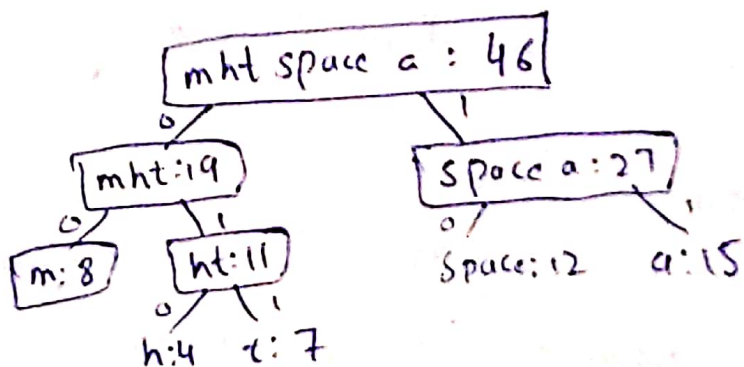 mht space a : 46
0 1
mht:19 space a:27
0 1 0 1
m:8 ht:11 space:12 a:15
0 1
h:4 t:7